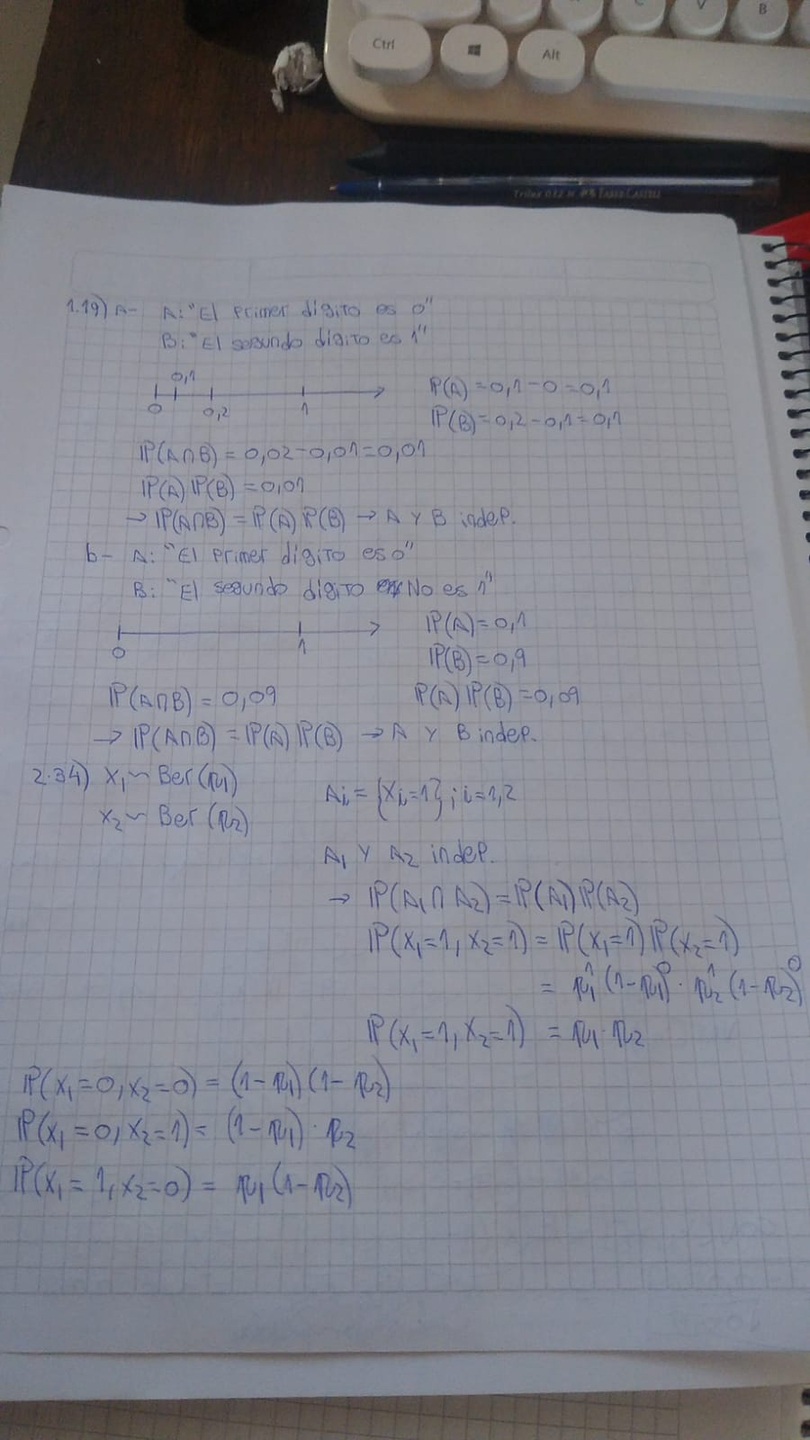 Ctrl
Alt
C
V
B
Trilux 032 M FABER CASTELL
1.19) A- A: "El primer dígito es 0"
B: "El segundo dígito es 1"
0,1
0 0,2 1
P(A) = 0,1 - 0 = 0,1
P(B) = 0,2 - 0,1 = 0,1
P(A∩B) = 0,02 - 0,01 = 0,01
P(A) P(B) = 0,01
→ P(A∩B) = P(A) P(B) → A Y B indep.
b- A: "El primer dígito es 0"
B: "El segundo dígito No es 1"
0 1
P(A) = 0,1
P(B) = 0,9
P(A∩B) = 0,09
P(A) P(B) = 0,09
→ P(A∩B) = P(A) P(B) → A Y B indep.
2.34) X₁ ~ Ber(p₁)
X₂ ~ Ber(p₂)
Ai = {Xi = 1} ; i = 1,2
A₁ Y A₂ indep.
→ P(A₁ ∩ A₂) = P(A₁) P(A₂)
P(X₁=1, X₂=1) = P(X₁=1) P(X₂=1)
= p₁¹ (1-p₁)⁰ · p₂¹ (1-p₂)⁰
P(X₁=1, X₂=1) = p₁ · p₂
P(X₁=0, X₂=0) = (1-p₁) (1-p₂)
P(X₁=0, X₂=1) = (1-p₁) · p₂
P(X₁=1, X₂=0) = p₁ (1-p₂)